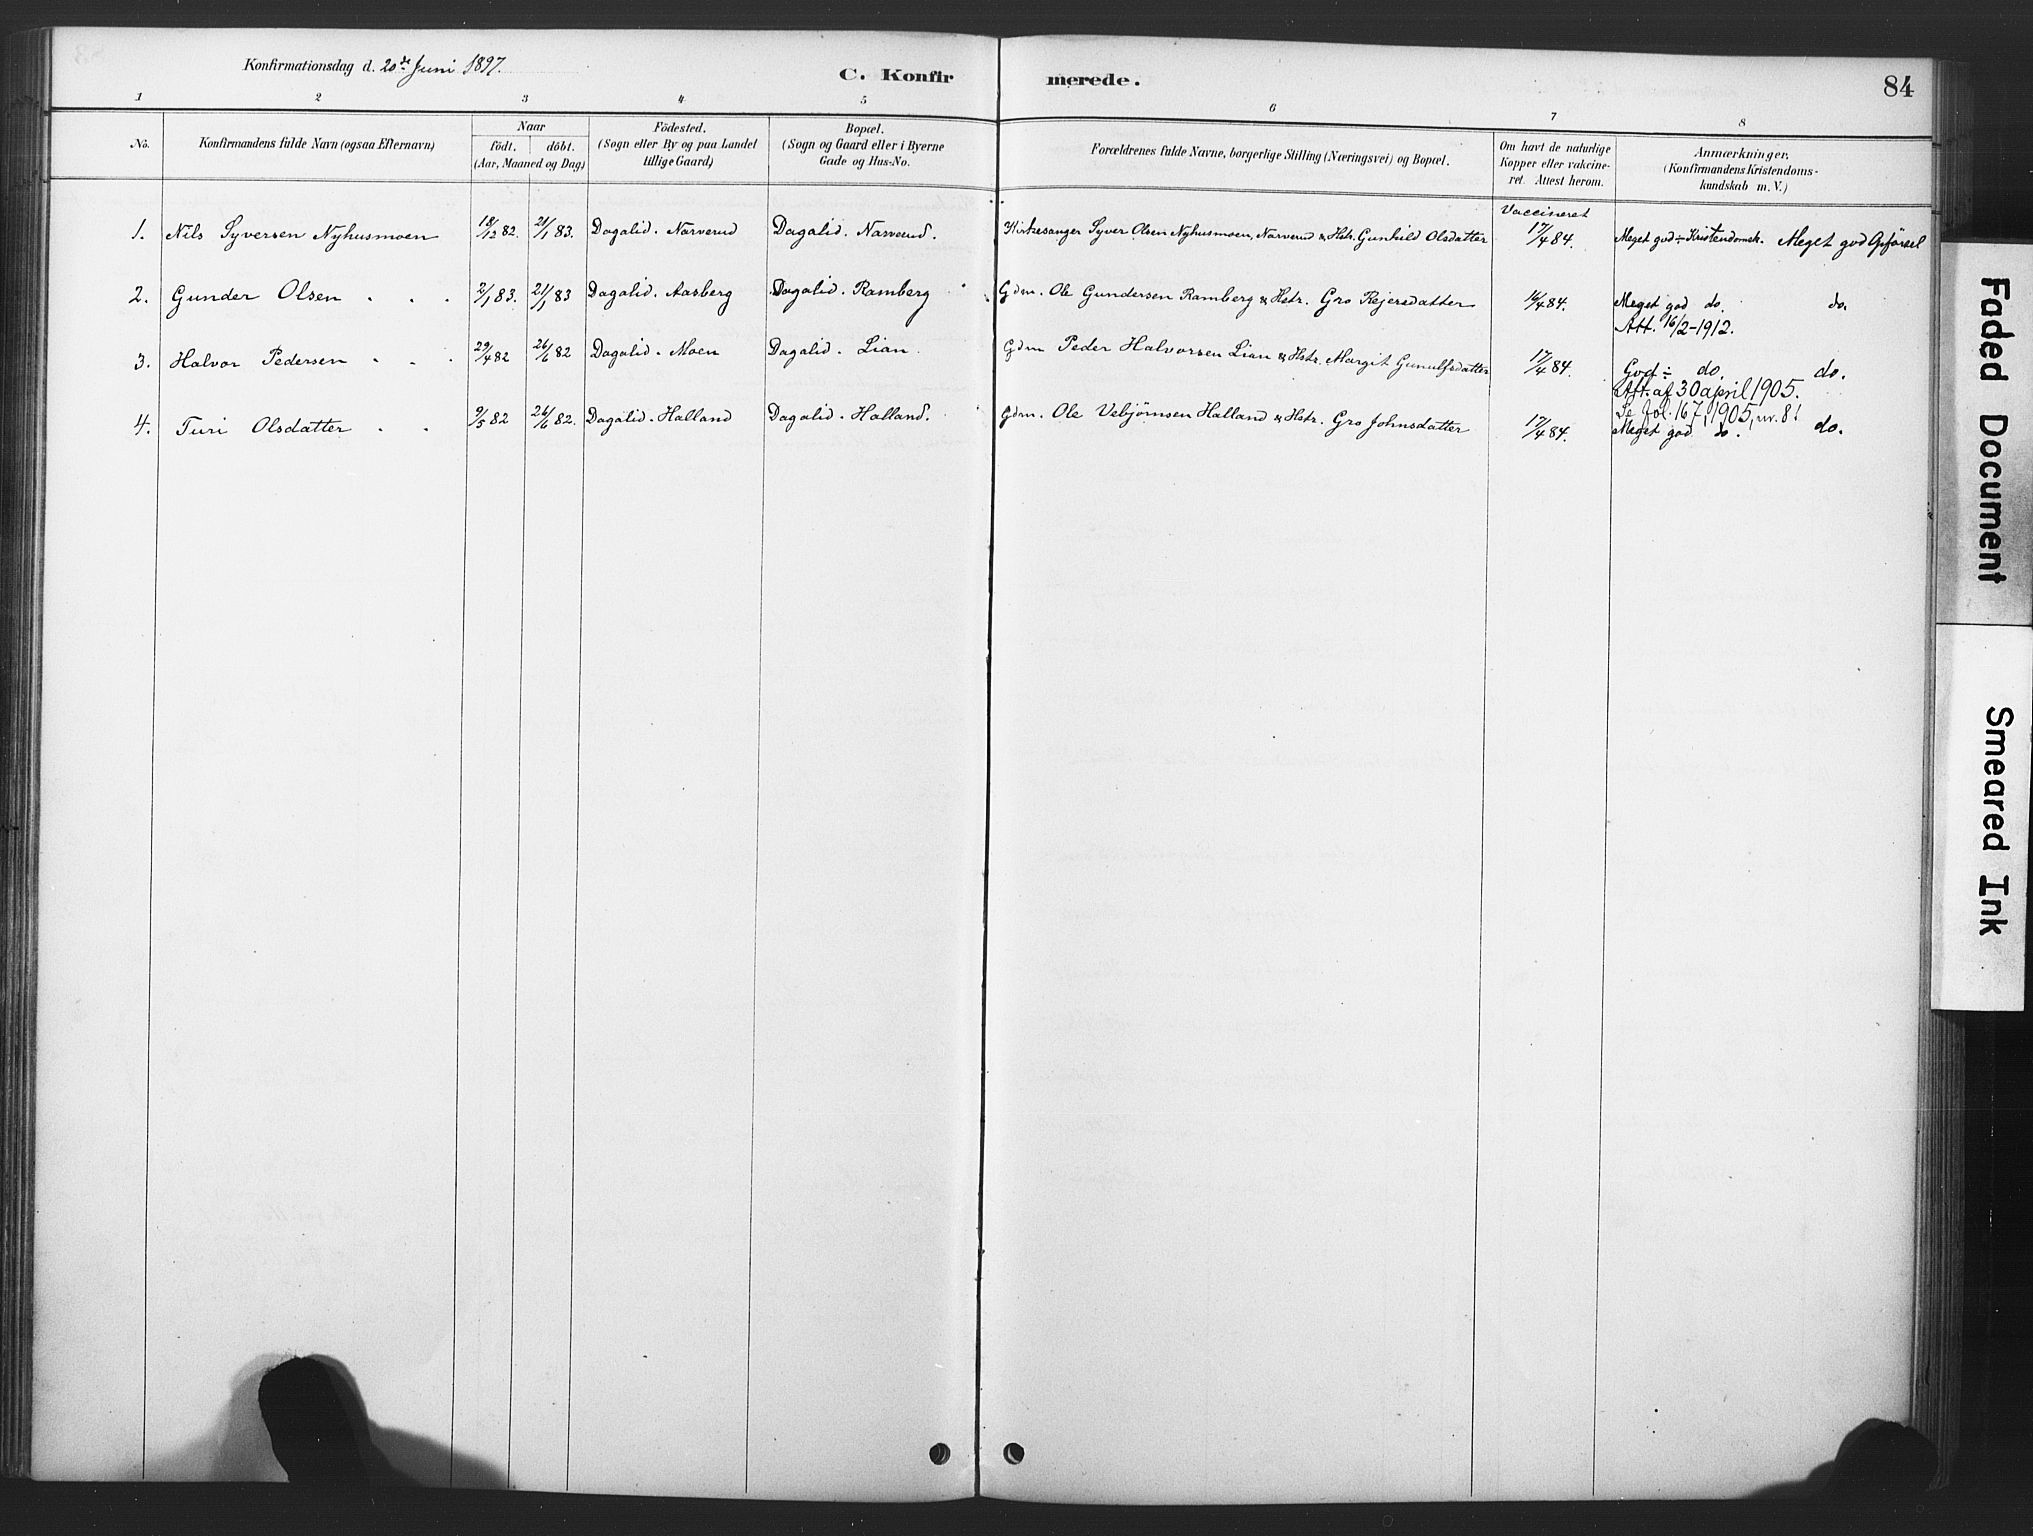 Konfirmationsdag d. 20de Juni 1897.
C. Konfir
merede.
84
1 2 3 4 5 6 7 8
No.
Konfirmandens fulde Navn (ogsaa Efternavn)
Naar
födt. döbt.
(Aar, Maaned og Dag)
Födested.
(Sogn eller By og paa Landet
tillige Gaard)
Bopæl.
(Sogn og Gaard eller i Byerne
Gade og Hus-No.
Forældrenes fulde Navne, borgerlige Stilling (Næringsvei) og Bopæl.
Om havt de naturlige
Kopper eller vakcine-
ret. Attest herom.
Anmærkninger.
(Konfirmandens Kristendoms-
kundskab m. V.)
Vaccineret
1. Nils Syversen Nyhusmoen 18/12 82. 21/1 83. Dagalid. Narverud Dagalid. Narverud. Kirkesanger Syver Olsen Nyhusmoen, Narverud & Hstr. Gunhild Olsdatter 17/4 84. Meget god ÷ Kristendomsk. Meget god Opförsel
2. Gunder Olsen 2/1 83. 21/1 83 Dagalid. Aasberg Dagalid. Ramberg Gdm. Ole Gundersen Ramberg & Hstr. Gro Rejersdatter 16/4 84. Meget god do. do.
Att. 16/2-1912.
3. Halvor Pedersen 29/4 82 26/6 82 Dagalid. Moen Dagalid. Lian. Gdm Peder Halvorsen Lian & Hstr. Margit Gunulfsdatter 17/4 84. God ÷ do. do.
Att. af 30 april 1905.
Se fol. 167, 1905, nr. 8!
4. Turi Olsdatter 9/5 82 26/6 82. Dagalid. Halland Dagalid. Halland. Gdm. Ole Vebjörnsen Halland & Hstr. Gro Johnsdatter 17/4 84. Meget god do. do.
Faded Document
Smeared Ink